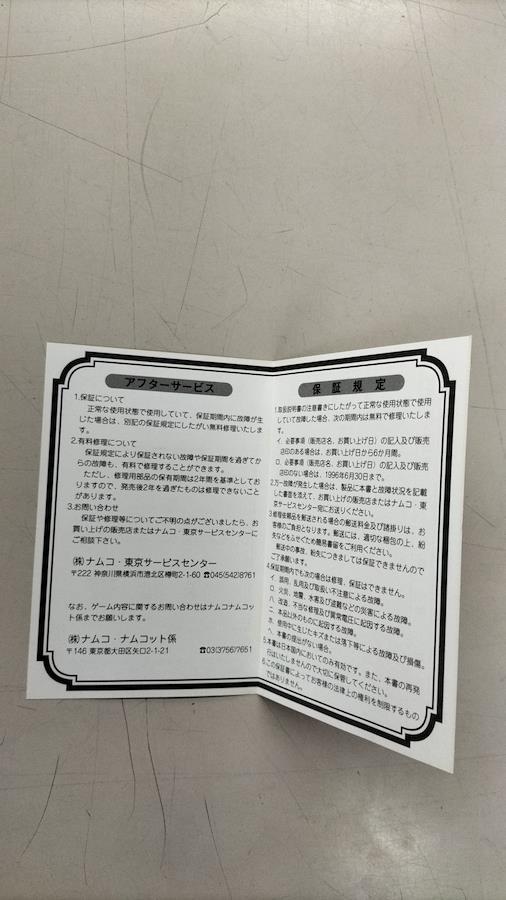 アフターサービス
1.保証について
正常な使用状態で使用していて、保証期間内に故障が生
じた場合は、別記の保証規定にしたがい無料修理いたしま
す。
2.有料修理について
保証規定により保証されない故障や保証期間を過ぎてか
らの故障も、有料で修理することができます。
ただし、修理用部品の保有期間は2年間を基準としてお
りますので、発売後2年を過ぎたものは修理できないこと
があります。
3.お問い合わせ
保証や修理等についてご不明の点がございましたら、お
買い上げの販売店またはナムコ・東京サービスセンターに
ご相談下さい。
㈱ナムコ・東京サービスセンター
〒222 神奈川県横浜市港北区樽町2-1-60 ☎045(542)8761
なお、ゲーム内容に関するお問い合わせはナムコナムコッ
ト係までお願いします。
㈱ナムコ・ナムコット係
〒146 東京都大田区矢口2-1-21 ☎03(3756)7651
保証規定
1.取扱説明書の注意書きにしたがって正常な使用状態で使用
していて故障した場合、次の期間内は無料で修理いたしま
す。
イ．必要事項（販売店名、お買い上げ日）の記入及び販売
店印のある場合は、お買い上げ日から6か月間。
ロ．必要事項（販売店名、お買い上げ日）の記入及び販売
店印のない場合は、1996年6月30日まで。
2.万一故障が発生した場合は、製品に本書と故障状況を記載
した書面を添えて、お買い上げの販売店またはナムコ・東
京サービスセンター宛にお送りください。
3.修理依頼品を郵送される場合の郵送料金及び諸掛りは、お
客様のご負担となります。郵送には、適切な梱包の上、紛
失などをふせぐため簡易書留をご利用ください。
郵送中の事故、紛失につきましては保証できませんので
ご了承願います。
4.保証期間内でも次の場合は修理、保証はできません。
イ．誤用、乱用及び取扱い不注意による故障。
ロ．火災、地震、水害及び盗難などの災害による故障。
ハ．改造、不当な修理及び異常電圧に起因する故障。
ニ．本品以外のものに起因する故障。
ホ．使用中に生じたキズまたは落下等による故障及び損傷。
ヘ．本書の提出がない場合。
5.本書は日本国内においてのみ有効です。また、本書の再発
行はいたしませんので大切に保管してください。
6.この保証書によってお客様の法律上の権利を制限するもの
ではありません。